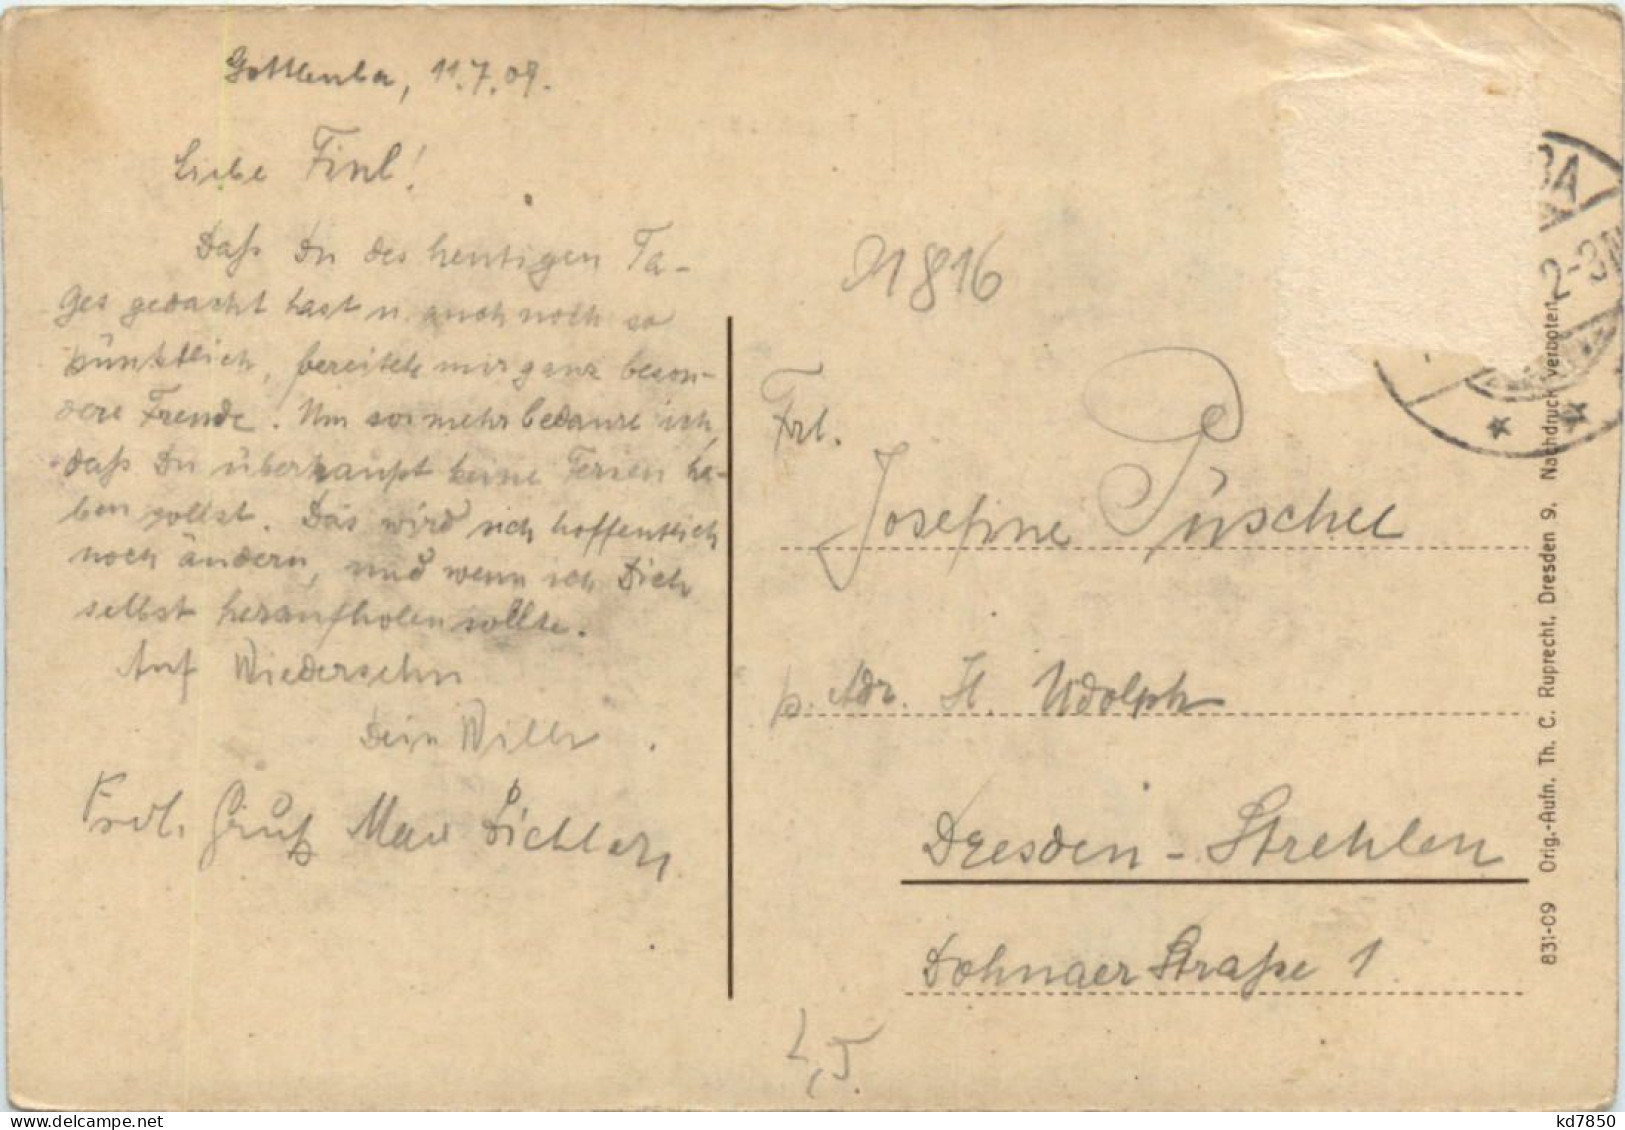 Gottleuba, 11.7.09.
Liebe Finl!
Daß Du des heutigen Ta-
ges gedacht hast u. auch noch so
pünktlich, bereitete mir ganz beson-
dere Freude. Um so mehr bedaure ich,
daß Du überhaupt keine Ferien ha-
ben sollst. Das wird sich hoffentlich
noch ändern, und wenn ich Dich
selbst heraufholen sollte.
Auf Wiedersehn
Dein Willy.
Frdl. Gruß Max
21816
Frl.
Josefine Püschel
p. Adr. H. Udolph
Dresden-Strehlen
Dohnaer Straße 1
4,5
BA
2-3N
831-09 Orig.-Aufn. Th. C. Ruprecht, Dresden 9. Nachdruck verboten.
www.delcampe.net
kd7850